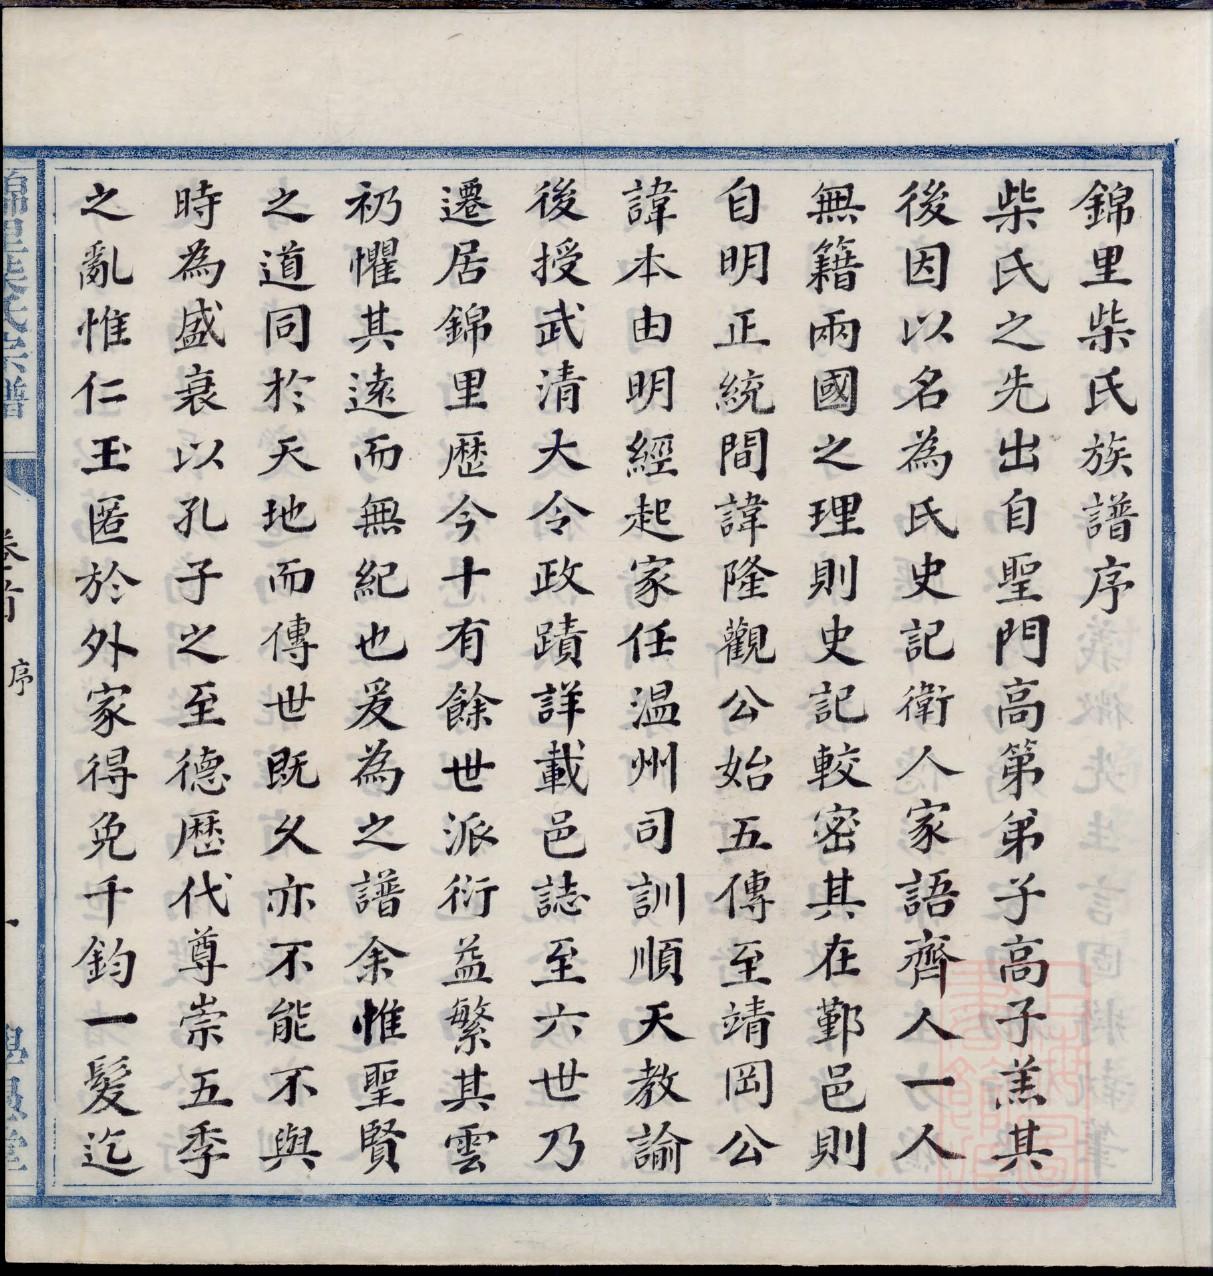 錦里柴氏族譜序
柴氏之先出自聖門高第弟子高子羔其
後因以名為氏史記衛人家語齊人一人
無籍兩國之理則史記較密其在鄞邑則
自明正統間諱隆觀公始五傳至靖岡公
諱本由明經起家任温州司訓順天教諭
後授武清大令政蹟詳載邑誌至六世乃
遷居錦里歷今十有餘世派衍益繁其雲
礽懼其遠而無紀也爰為之譜余惟聖賢
之道同於天地而傳世既久亦不能不與
時為盛衰以孔子之至德歷代尊崇五季
之亂惟仁玉匿於外家得免千鈞一髮迄
錦里柴氏宗譜
卷首
序
一